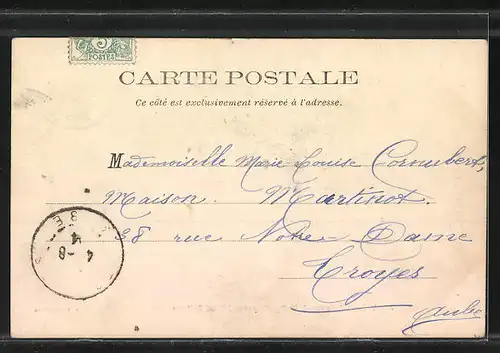 5
POSTES
CARTE POSTALE
Ce côté est exclusivement réservé à l'adresse.
Mademoiselle Marie Louise Cornubert,
Maison. Martinot.
98 rue Notre-Dame
Troyes
Aube